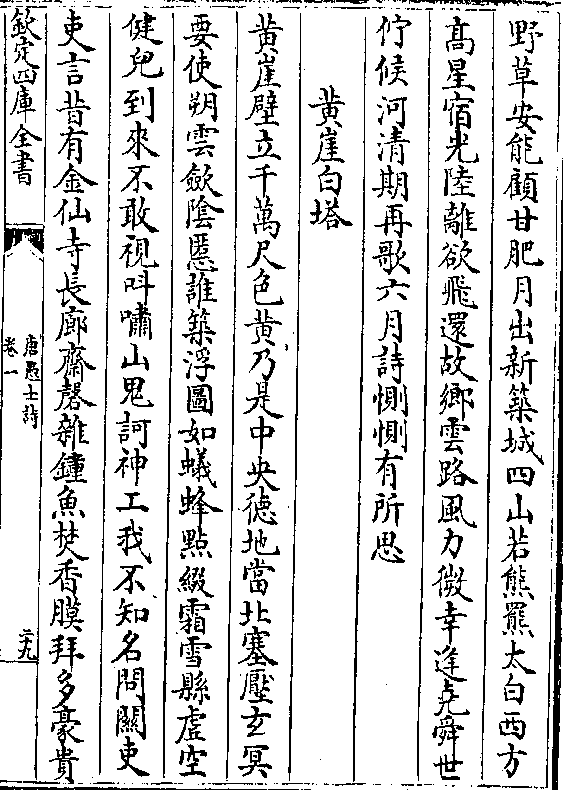 野草安能顧甘肥月出新築城四山若熊羆太白西方
髙星宿光陸離欲飛還故鄉雲路風力微幸逢堯舜世
佇候河清期再歌六月詩惻惻有所思
黄崖白塔
黄崖壁立千萬尺色黄乃是中央徳地當北塞壓玄冥
要使朔雲斂陰慝誰築浮圖如蟻蜂點綴霜雪縣虚空
健兒到來不敢視呌嘯山鬼訶神工我不知名問關吏
吏言昔有金仙寺長廊齋磬雜鐘魚焚香膜拜多豪貴
欽定四庫全書
唐愚士詩
卷一
二十九